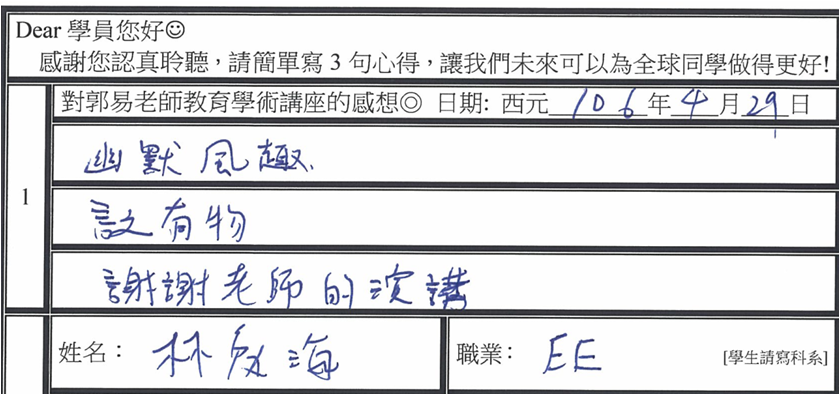 Dear 學員您好☺
感謝您認真聆聽，請簡單寫 3 句心得，讓我們未來可以為全球同學做得更好!
對郭易老師教育學術講座的感想◎ 日期: 西元 106 年 4 月 29 日
幽默風趣.
1
言之有物
謝謝老師的演講
姓名： 林 海 職業： EE [學生請寫科系]